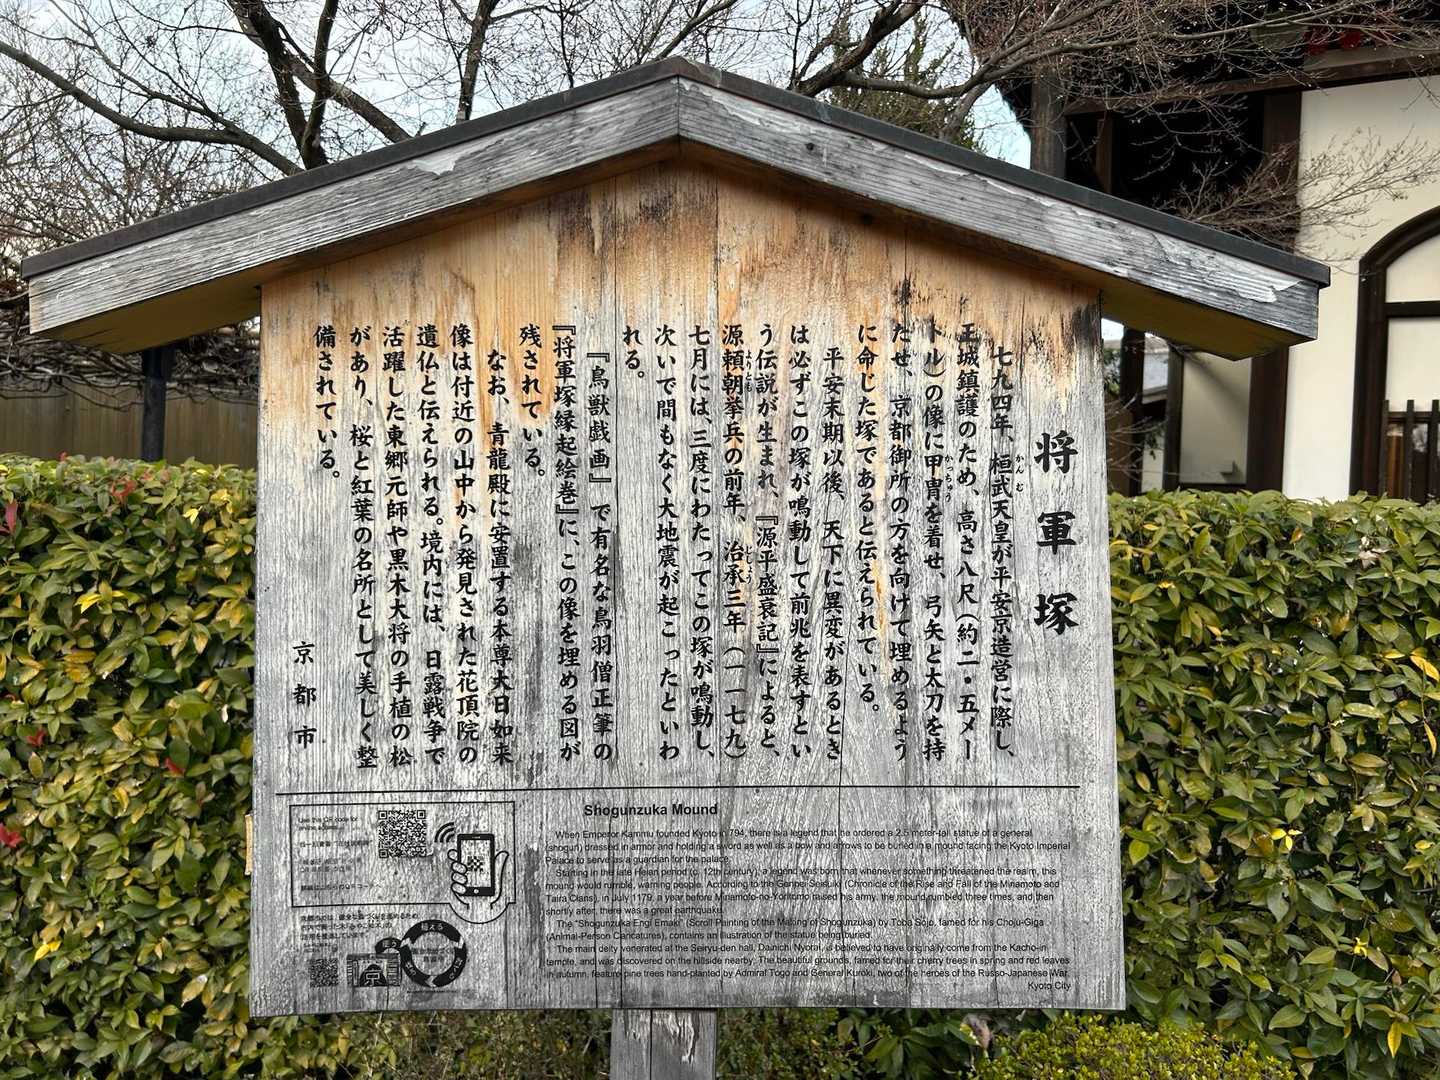 将軍塚
七九四年、桓武天皇が平安京造営に際し、
かん む
王城鎮護のため、高さ八尺（約二・五メー
トル）の像に甲冑を着せ、弓矢と太刀を持
かっちゅう
たせ、京都御所の方を向けて埋めるよう
に命じた塚であると伝えられている。
平安末期以後、天下に異変があるとき
は必ずこの塚が鳴動して前兆を表すとい
う伝説が生まれ、『源平盛衰記』によると、
源頼朝挙兵の前年、治承三年（一一七九）
よりとも
じしょう
七月には、三度にわたってこの塚が鳴動し、
次いで間もなく大地震が起こったといわ
れる。
『鳥獣戯画』で有名な鳥羽僧正筆の
『将軍塚縁起絵巻』に、この像を埋める図が
残されている。
なお、青龍殿に安置する本尊大日如来
像は付近の山中から発見された花頂院の
遺仏と伝えられる。境内には、日露戦争で
活躍した東郷元師や黒木大将の手植の松
があり、桜と紅葉の名所として美しく整
備されている。
京都市
Shogunzuka Mound
When Emperor Kammu founded Kyoto in 794, there is a legend that he ordered a 2.5 meter-tall statue of a general
(shogun) dressed in armor and holding a sword as well as a bow and arrows to be buried in a mound facing the Kyoto Imperial
Palace to serve as a guardian for the palace.
Starting in the late Heian period (c. 12th century), a legend was born that whenever something threatened the realm, this
mound would rumble, warning people. According to the Genpei Seisuiki (Chronicle of the Rise and Fall of the Minamoto and
Taira Clans), in July 1179, a year before Minamoto-no-Yoritomo raised his army, the mound rumbled three times, and then
shortly after, there was a great earthquake.
The "Shogunzuka Engi Emaki" (Scroll Painting of the Making of Shogunzuka) by Toba Sojo, famed for his Choju-Giga
(Animal-Person Caricatures), contains an illustration of the statue being buried.
The main deity venerated at the Seiryu-den hall, Dainichi Nyorai, is believed to have originally come from the Kacho-in
temple, and was discovered on the hillside nearby. The beautiful grounds, famed for their cherry trees in spring and red leaves
in autumn, feature pine trees hand-planted by Admiral Togo and General Kuroki, two of the heroes of the Russo-Japanese War.
Kyoto City
Use this QR code for
online access.
京